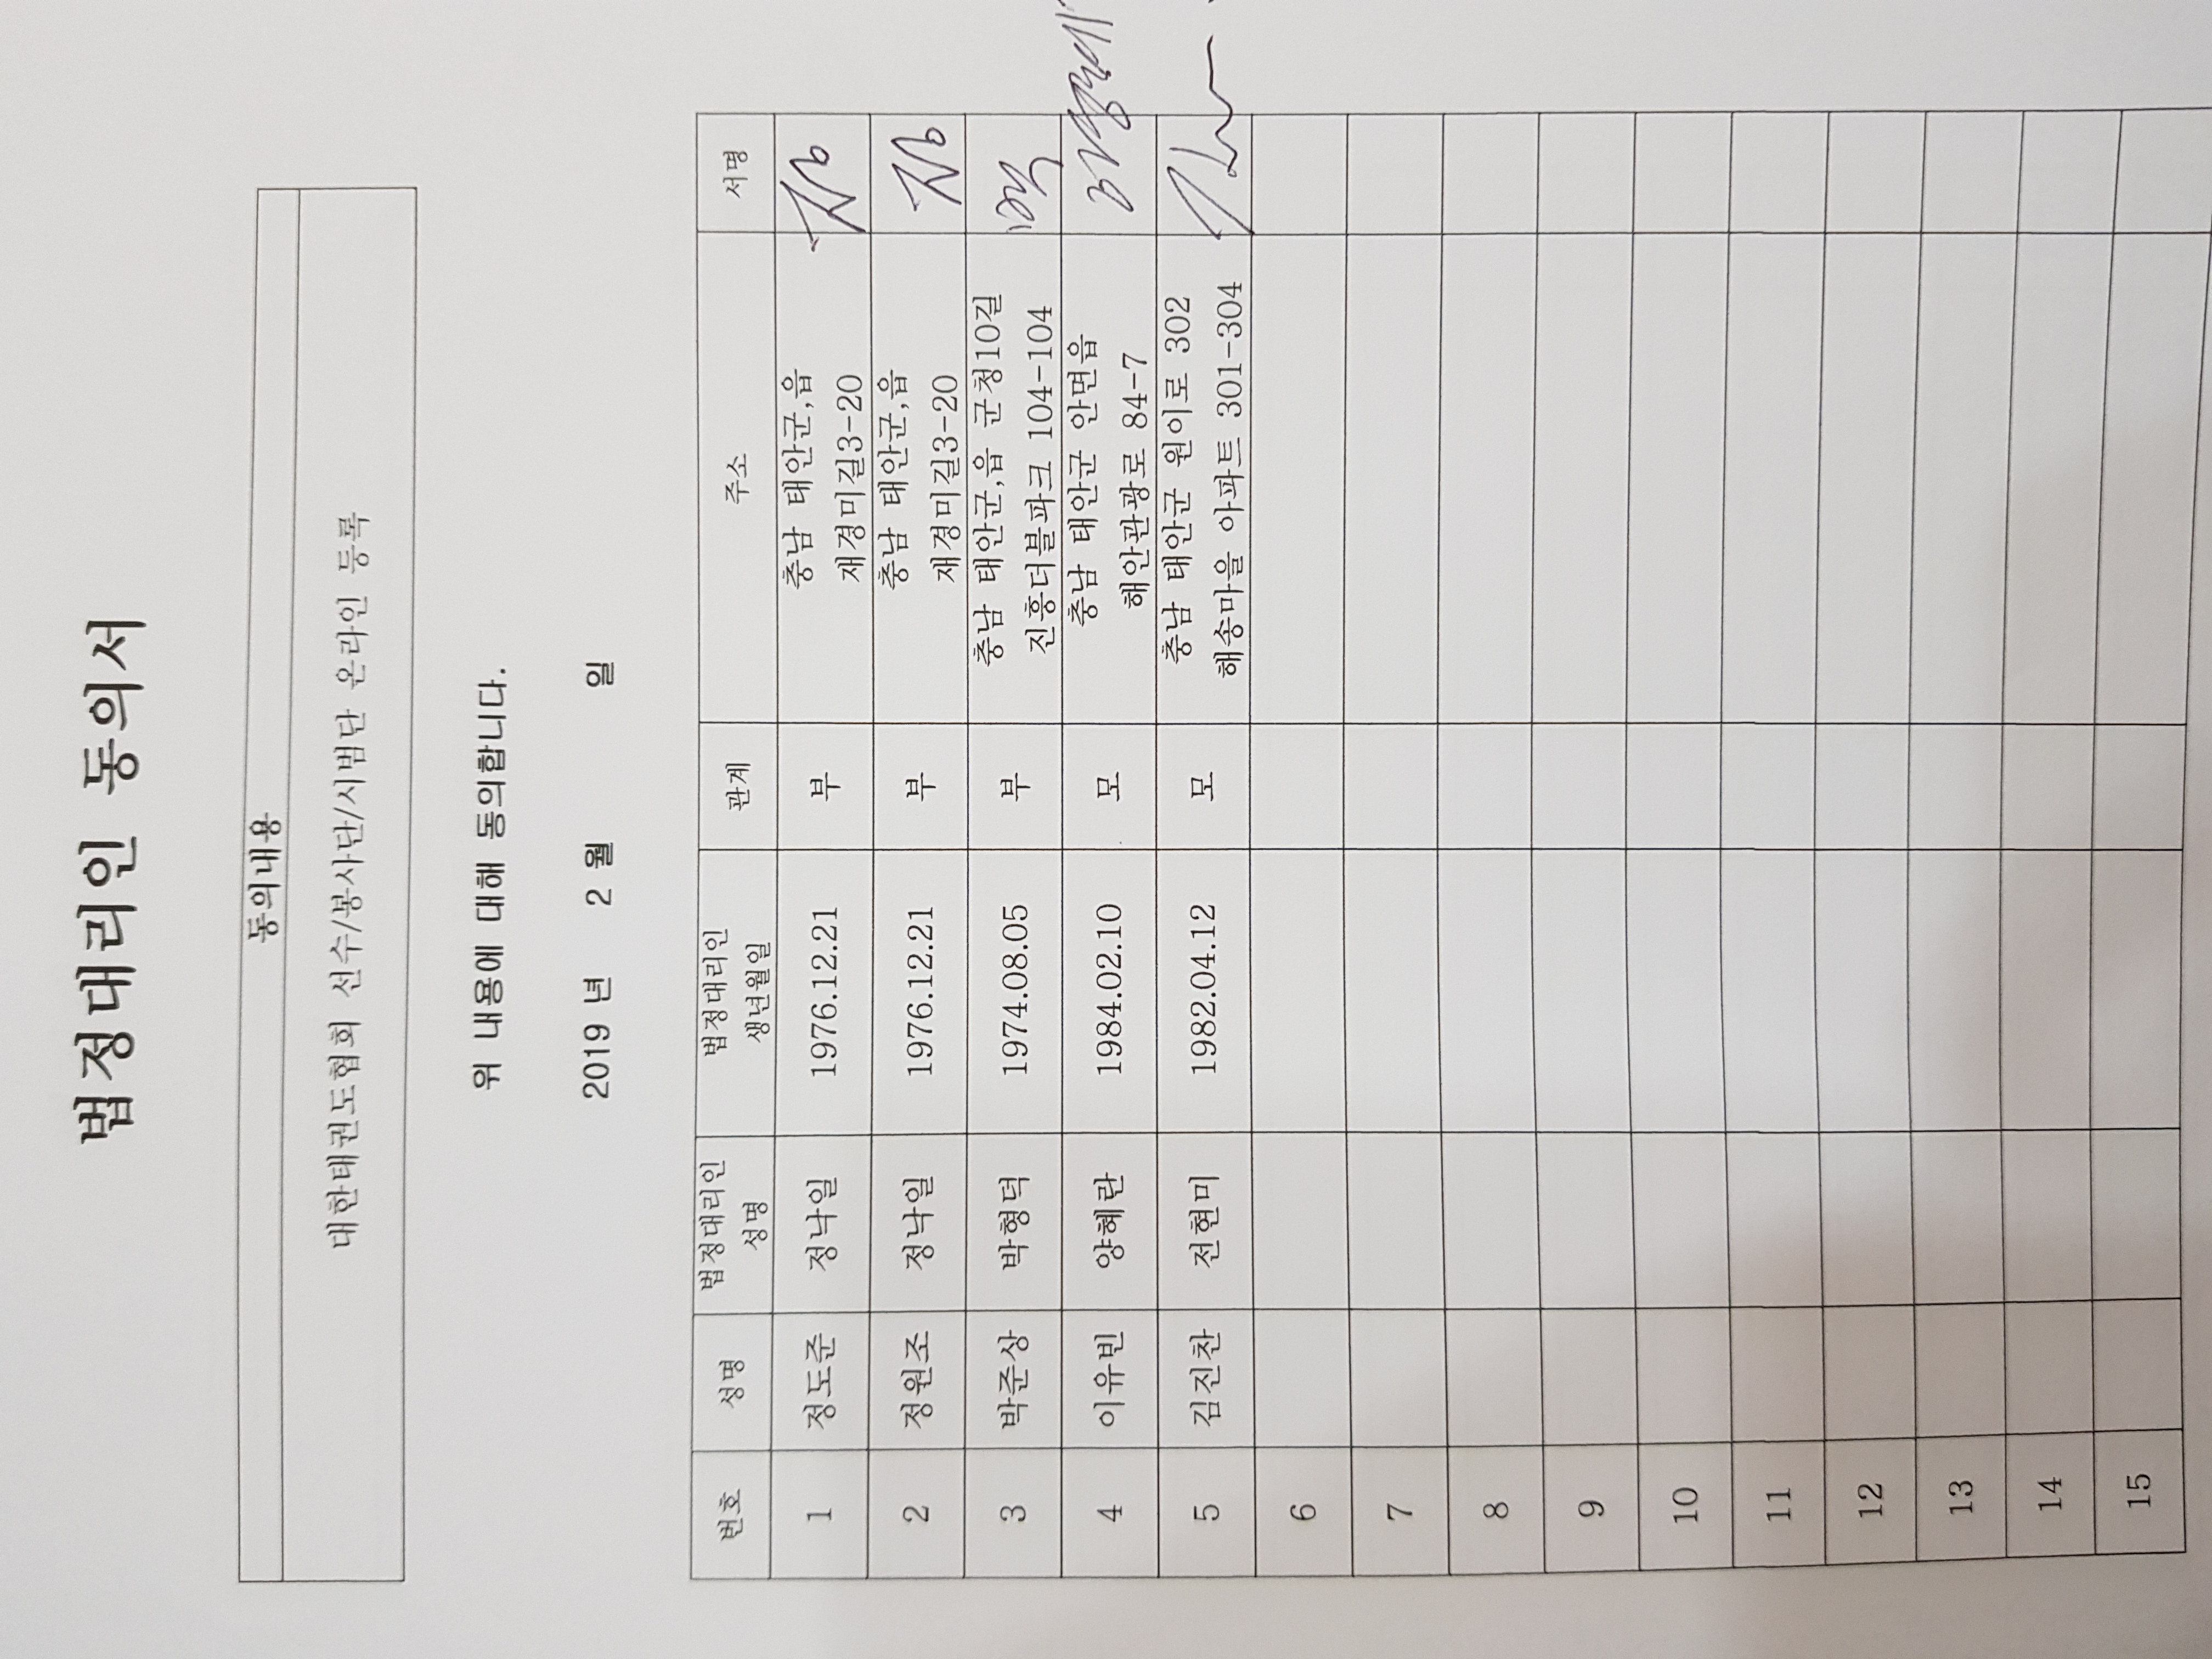 법정대리인 동의서
동의내용
대한태권도협회 선수/봉사단/시범단 온라인 등록
위 내용에 대해 동의합니다.
2019 년 2 월 일
번호 성명 법정대리인 성명 법정대리인 생년월일 관계 주소 서명
1 정도준 정낙일 1976.12.21 부 충남 태안군,읍
재경미길3-20
2 정원조 정낙일 1976.12.21 부 충남 태안군,읍
재경미길3-20
3 박준상 박형덕 1974.08.05 부 충남 태안군,읍 군청10길
진흥더블파크 104-104
4 이유빈 양혜란 1984.02.10 모 충남 태안군 안면읍
해안관광로 84-7
5 김진찬 전현미 1982.04.12 모 충남 태안군 원이로 302
해송마을 아파트 301-304
6
7
8
9
10
11
12
13
14
15